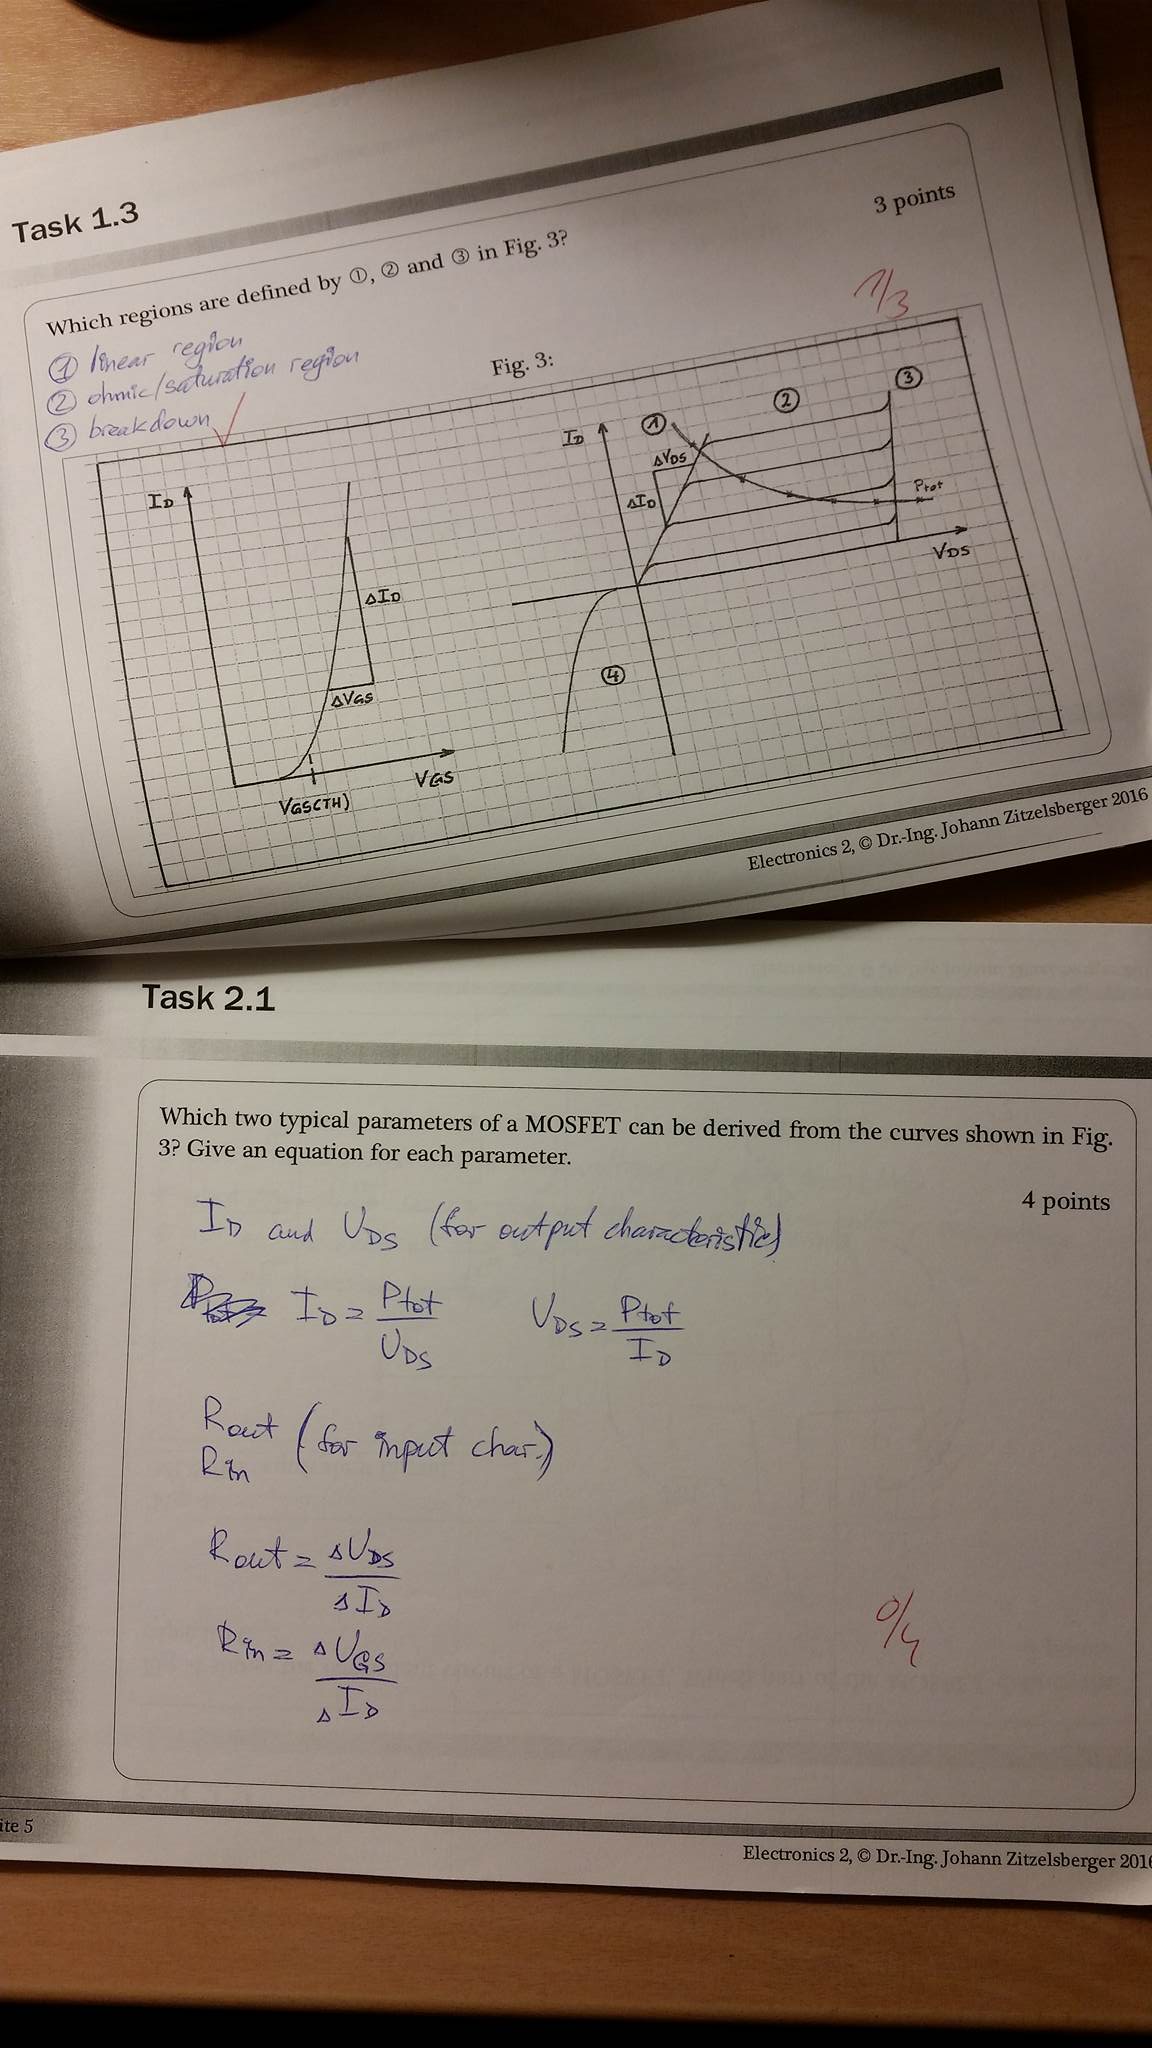 Task 1.3
3 points
Which regions are defined by ①, ② and ③ in Fig. 3?
① linear region
② ohmic/saturation region
③ breakdown
1/3
Fig. 3:
I_D
ΔI_D
ΔV_GS
V_GS
V_GS(TH)
I_D
①
②
③
ΔV_DS
ΔI_D
Ptot
V_DS
④
Electronics 2, © Dr.-Ing. Johann Zitzelsberger 2016
Task 2.1
Which two typical parameters of a MOSFET can be derived from the curves shown in Fig.
3? Give an equation for each parameter.
4 points
I_D and U_DS (for output characteristic)
I_D = Ptot / U_DS U_DS = Ptot / I_D
Rout (for input char.)
Rin
Rout = ΔU_DS / ΔI_D
0/4
Rin = ΔU_GS / ΔI_D
ite 5
Electronics 2, © Dr.-Ing. Johann Zitzelsberger 2016